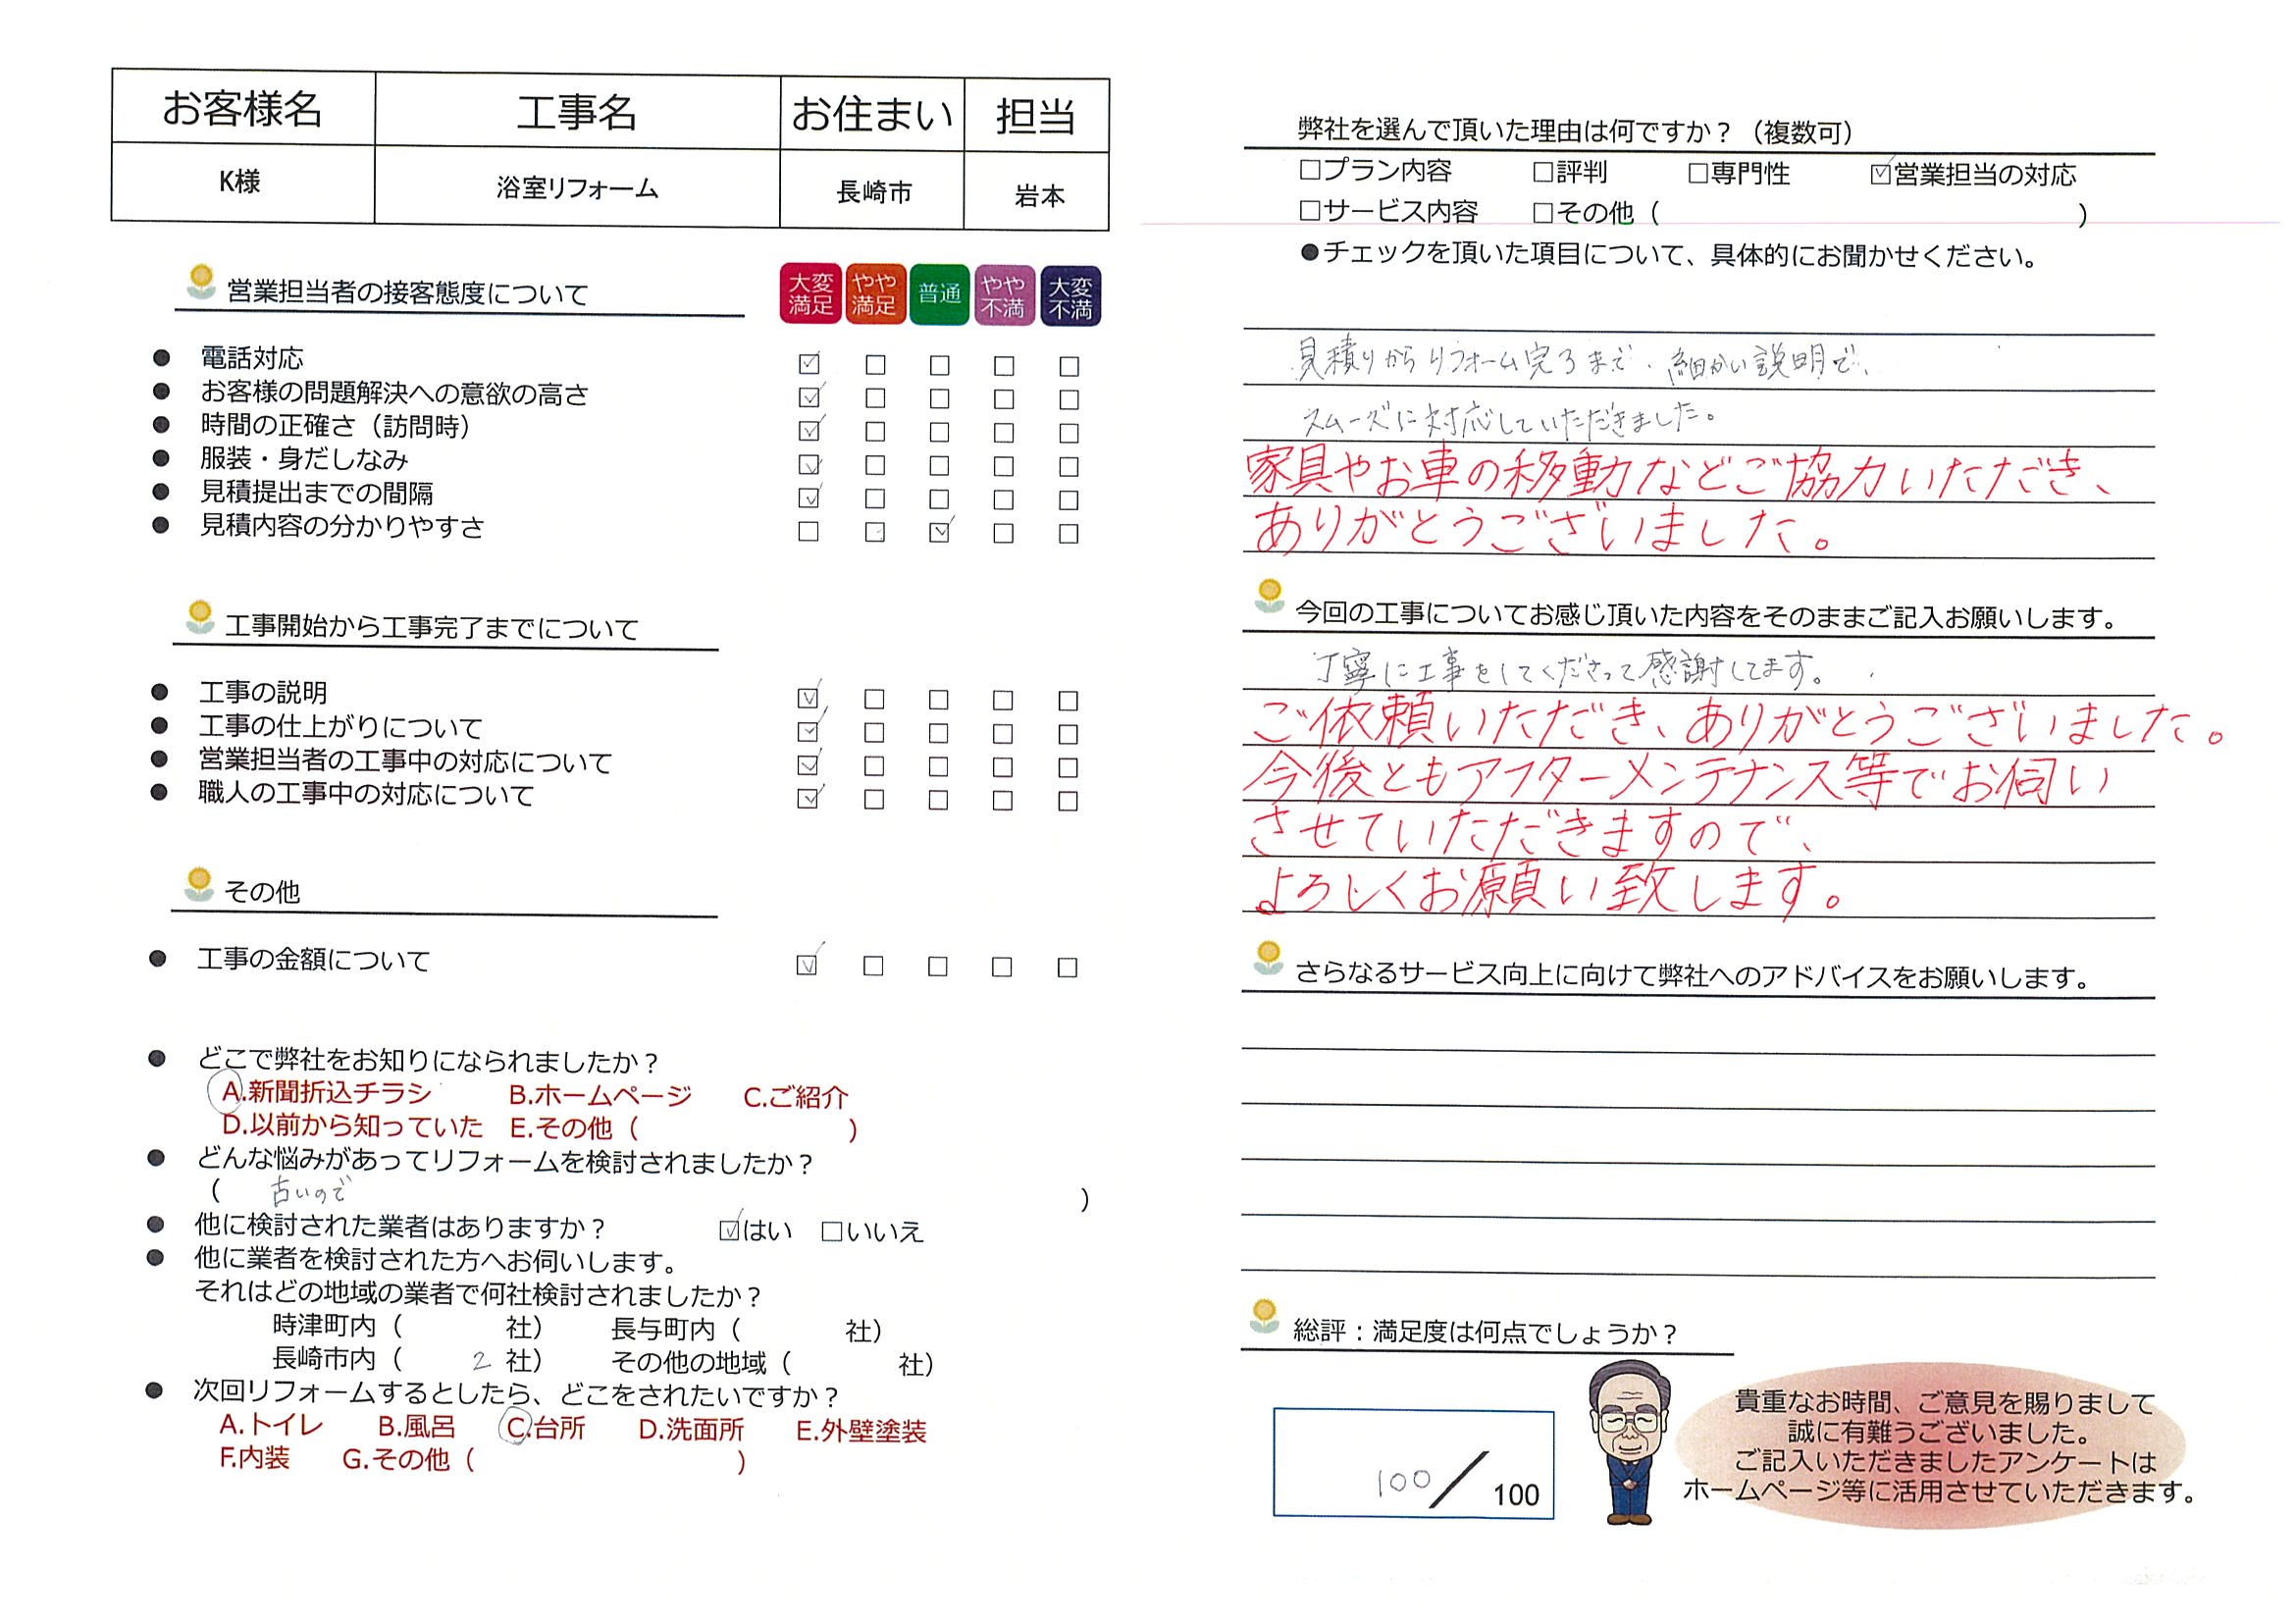 お客様名 工事名 お住まい 担当
K様 浴室リフォーム 長崎市 岩本
営業担当者の接客態度について
大変満足 やや満足 普通 やや不満 大変不満
● 電話対応 ☑ □ □ □ □
● お客様の問題解決への意欲の高さ ☑ □ □ □ □
● 時間の正確さ（訪問時） ☑ □ □ □ □
● 服装・身だしなみ ☑ □ □ □ □
● 見積提出までの間隔 ☑ □ □ □ □
● 見積内容の分かりやすさ □ □ ☑ □ □
工事開始から工事完了までについて
● 工事の説明 ☑ □ □ □ □
● 工事の仕上がりについて ☑ □ □ □ □
● 営業担当者の工事中の対応について ☑ □ □ □ □
● 職人の工事中の対応について ☑ □ □ □ □
その他
● 工事の金額について ☑ □ □ □ □
● どこで弊社をお知りになられましたか？
A.新聞折込チラシ B.ホームページ C.ご紹介
D.以前から知っていた E.その他（ ）
● どんな悩みがあってリフォームを検討されましたか？
（ 古いので ）
● 他に検討された業者はありますか？ ☑はい □いいえ
● 他に業者を検討された方へお伺いします。
それはどの地域の業者で何社検討されましたか？
時津町内（ 社） 長与町内（ 社）
長崎市内（ 2 社） その他の地域（ 社）
● 次回リフォームするとしたら、どこをされたいですか？
A.トイレ B.風呂 C.台所 D.洗面所 E.外壁塗装
F.内装 G.その他（ ）
弊社を選んで頂いた理由は何ですか？（複数可）
□プラン内容 □評判 □専門性 ☑営業担当の対応
□サービス内容 □その他（ ）
●チェックを頂いた項目について、具体的にお聞かせください。
見積りからリフォーム完了まで、細かい説明で、
スムーズに対応していただきました。
家具やお車の移動などご協力いただき、
ありがとうございました。
今回の工事についてお感じ頂いた内容をそのままご記入お願いします。
丁寧に工事をしてくださって感謝してます。
ご依頼いただき、ありがとうございました。
今後ともアフターメンテナンス等でお伺い
させていただきますので、
よろしくお願い致します。
さらなるサービス向上に向けて弊社へのアドバイスをお願いします。
総評：満足度は何点でしょうか？
100/100
貴重なお時間、ご意見を賜りまして
誠に有難うございました。
ご記入いただきましたアンケートは
ホームページ等に活用させていただきます。